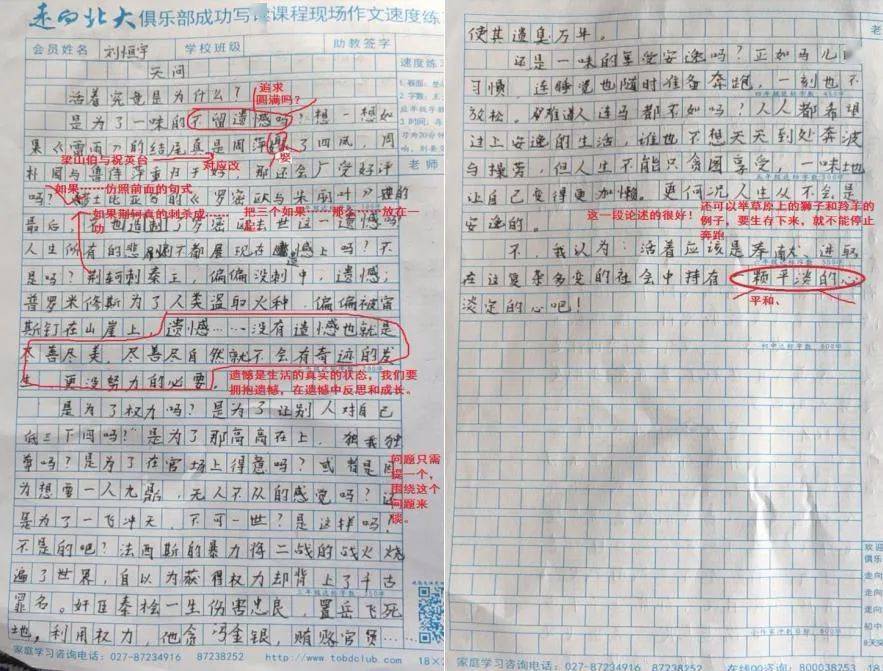 走向北大俱乐部成功写 课程现场作文速度练
会员姓名 刘恒宇 学校班级 助教签字
速度练习
天问
活着究竟是为什么？
追求
圆满吗？
是为了一味的不留遗憾吗？想一想如
果《雷雨》的结尾真是周萍 了四凤，周
娶
朴园与鲁侍萍重归于好， 那还会广受好评
梁山伯与祝英台
对应改
吗？ 士比亚 的《罗密欧与朱丽叶》 的
如果……仿照前面的句式
最后， 也 罗密 去世 这一遗憾
如果荆轲真的刺杀成……
功
把三个如果……那么……放在一
起
人生所有的悲剧不都展现在遗憾上吗？不
是吗？荆轲刺秦王，偏偏没刺中，遗憾；
普罗米修斯为了人类盗取火种，偏偏被宙
斯钉在山崖上，遗憾……没有遗憾也就是
尽善尽美，尽善尽 自然就不会有奇迹的发
生， 更没努力的必要。
遗憾是生活的真实的状态，我们要
拥抱遗憾，在遗憾中反思和成长。
是为了权力吗？是为了让别人对自己
低三下四吗？是为了那高高在上，独我独
尊吗？是为了在官场上得意吗？或者是因
问题只需
提一个，
围绕这个
问题来
谈。
为想要一人九鼎，无人不从的感觉吗？还
是为了一飞冲天，不可一世？是这样吗？
不是的吧？法西斯的暴力将二战的战火烧
遍了世界，自以为获得权力却背上了千古
罪名。奸臣秦桧一生伤害忠良，置岳飞死
地，利用权力，他贪污金银，贿赂官员……
家庭学习咨询电话：027-87234916 87238252 http://www.tobdclub.com 18×2
使其遗臭万年。
还是一味的享受安逸吗？正如马儿
习惯，连睡觉也随时准备奔跑，一刻也不
放松。 难道人连马都不如吗？人人都希望
过上安逸的生活，谁也不想天天到处奔波
与操劳，但人生不能只贪图享受，一味地
让自己变得更加懒。更何况人生从不会是
安逸的。
这一段论述的很好！
还可以举草原上的狮子和羚羊的
例子，要生存下来，就不能停止
奔跑
不，我认为：活着应该是奉献、进取
在这复杂多变的社会中持有一颗平淡的心
平和、
淡定的心吧！
家庭学习咨询电话：027-87234916 87238252 在线QQ咨询：800038253 18